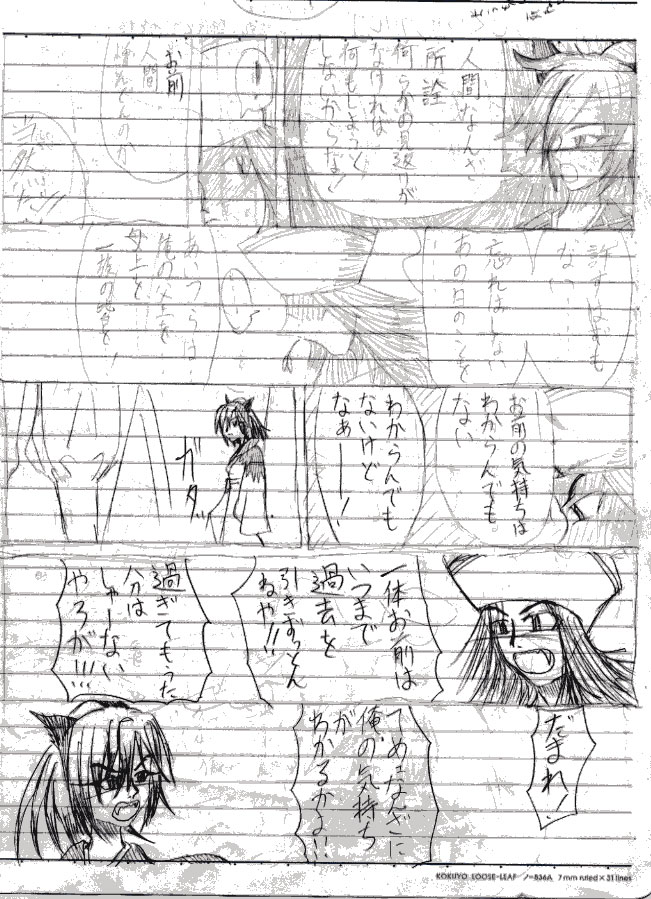 人間なんざ
所詮
何らかの見返りが
なければ
何もしようと
しないからな!
お前
人間
許すはずも
ない
忘れはしない
あの日のことを
あいつらは
俺の父上を
母上を
一族の皆を!
お前の気持ちは
わからんでも
ない
わからんでも
ないけど
なぁーー!
ガタッ
一体お前は
いつまで
過去を
引きずっとん
ねや!!
過ぎてもった
分は
しゃーない
やろが!!!
だまれ!
てめェなんざに
俺の気持ち
が
わかるかよ!!
KOKUYO LOOSE-LEAF ノ-836A 7mm ruled×31 lines